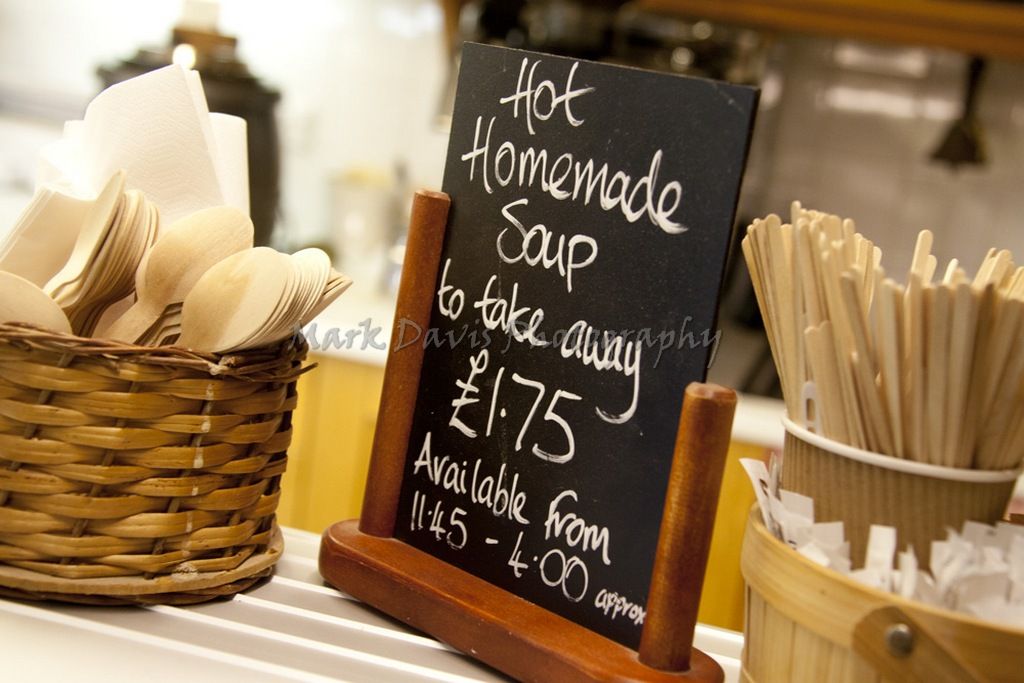 Hot
Homemade
Soup
to take away
£1.75
Available from
11.45 - 4.00 approx
Mark Davis Photography